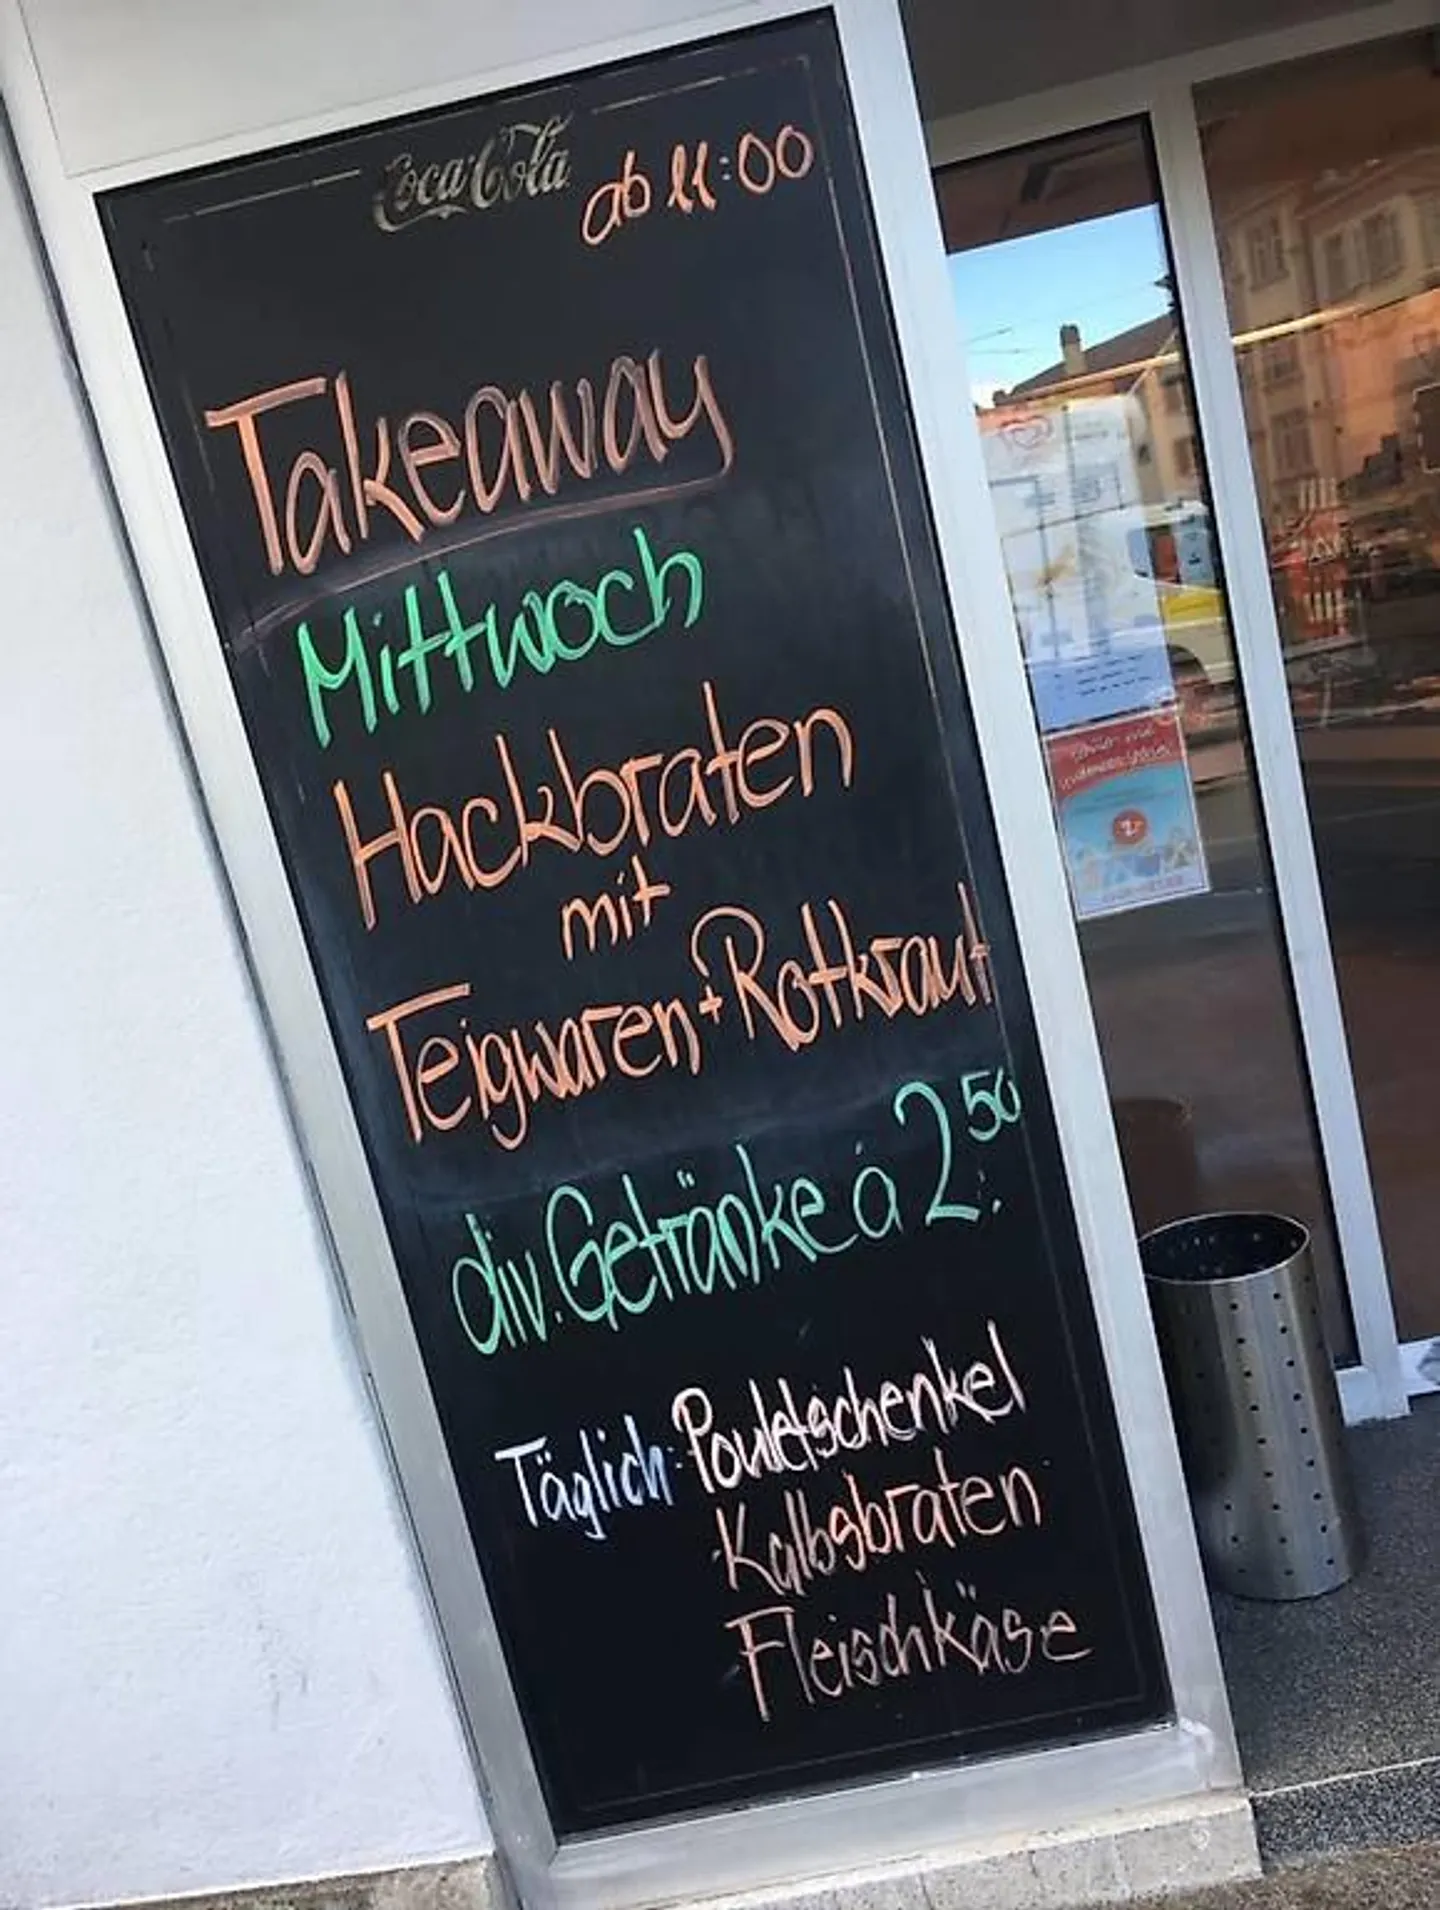 Coca-Cola
ab 11:00
Takeaway
Mittwoch
Hackbraten
mit
Teigwaren + Rotkraut
div. Getränke à 2.50
Täglich: Pouletschenkel
Kalbsbraten
Fleischkäse